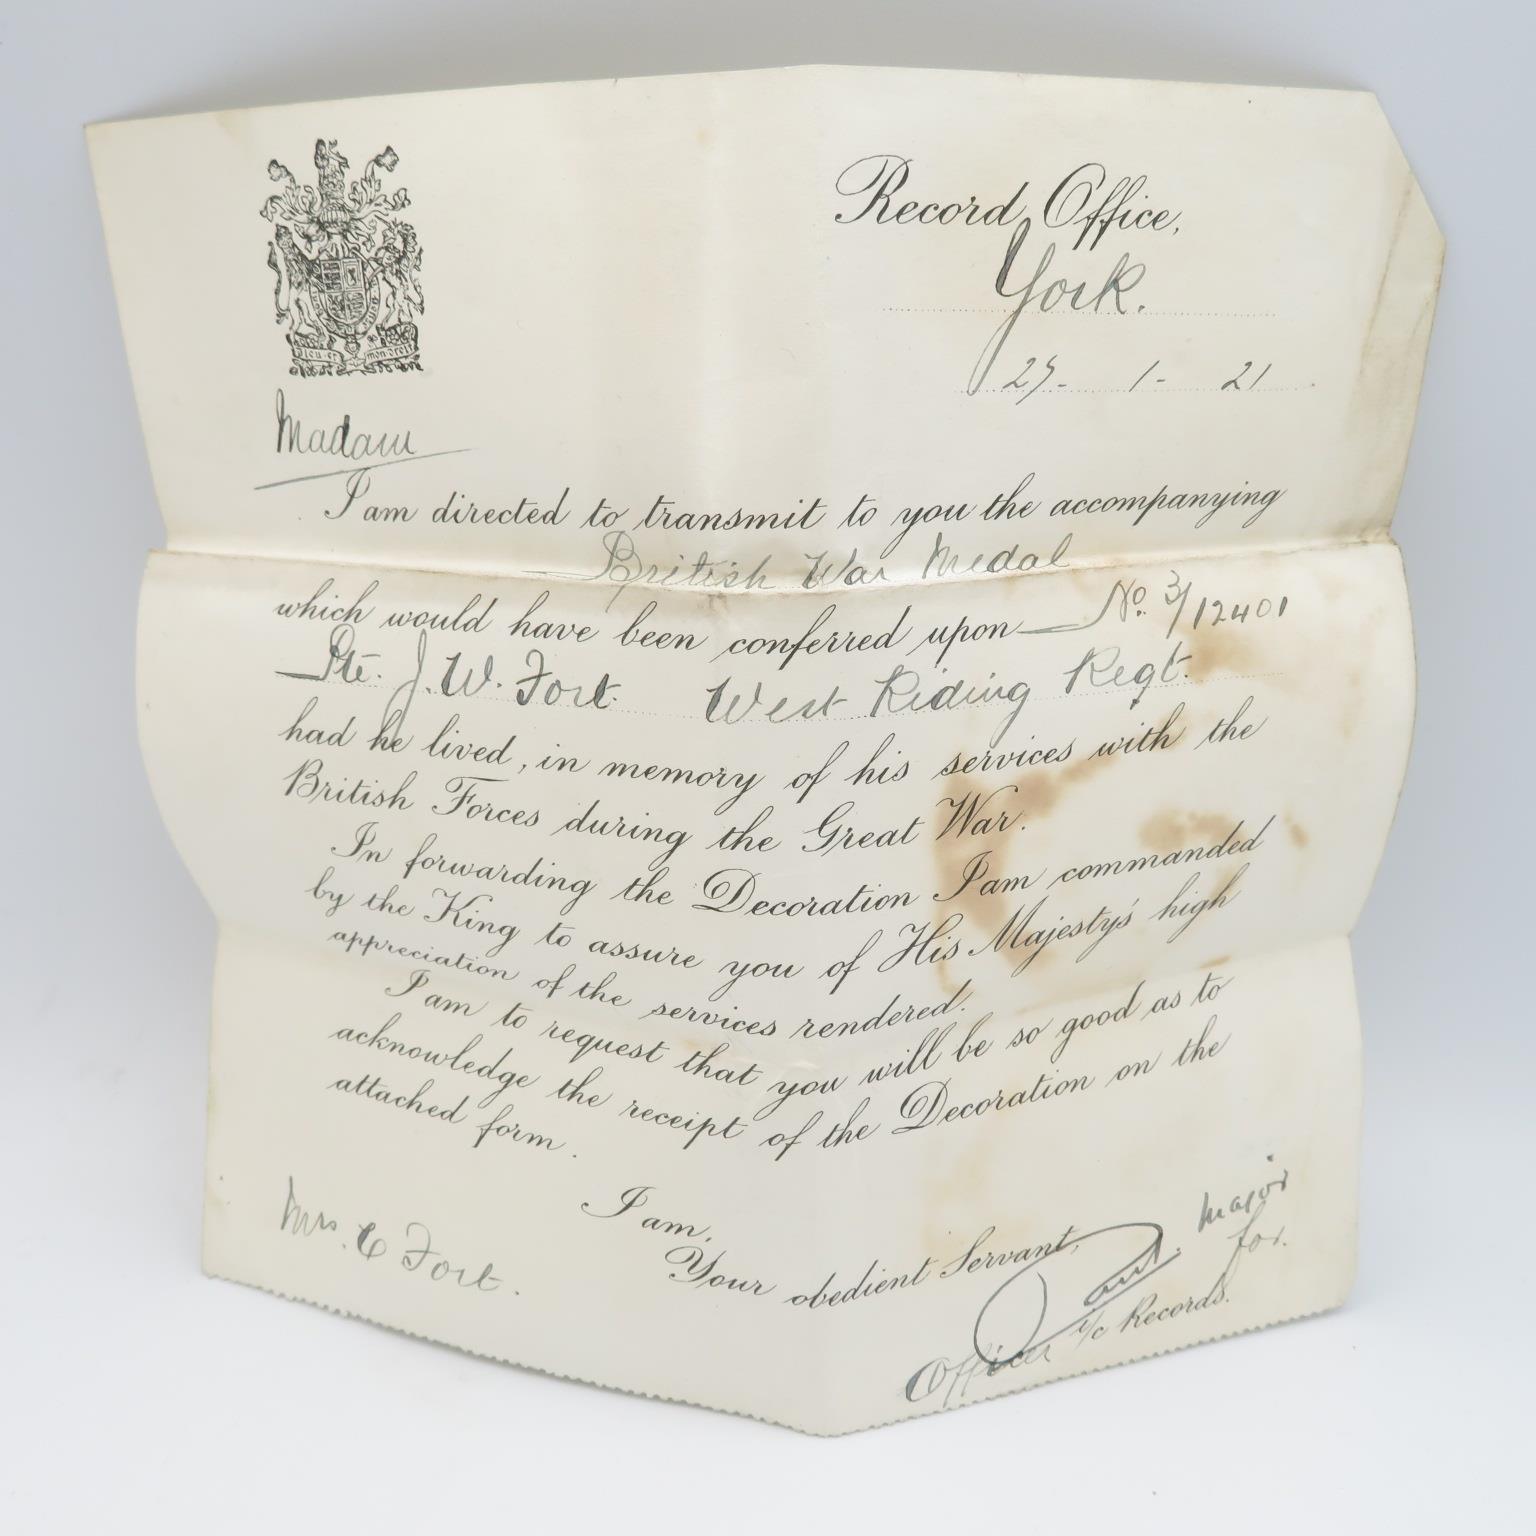 Record Office,
York.
1 - 21
Dieu et mon droit
Madam
I am directed to transmit to you the accompanying
British War Medal
which would have been conferred upon No. 3/12401
Pte. J. W. Fort. West Riding Regt.
had he lived, in memory of his services with the
British Forces during the Great War.
In forwarding the Decoration I am commanded
by the King to assure you of His Majesty's high
appreciation of the services rendered.
I am to request that you will be so good as to
acknowledge the receipt of the Decoration on the
attached form.
I am,
Your obedient Servant,
Major
for.
Officer i/c Records.
Mrs. C Fort.